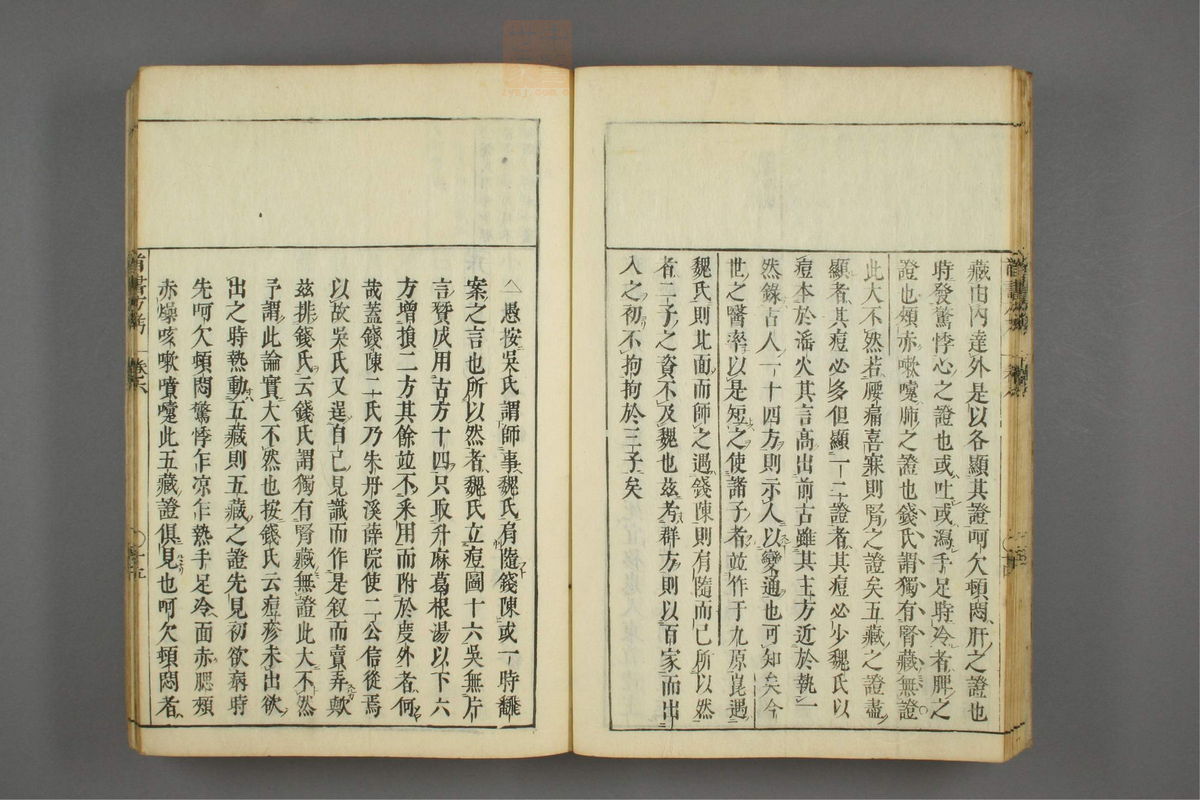 藏由內達外是以各顯其證呵欠頓悶肝之證也
時發驚悸心之證也或吐或瀉手足時冷者脾之
證也頰赤嗽嚏肺之證也錢氏謂獨有腎藏無證
此大不然若腰痛喜寐則腎之證矣五藏之證盡
顯者其痘必多但顯一二證者其痘必少魏氏以
痘本於滛火其言高出前古雖其主方近於執一
然錄古人一十四方則示人以變通也可知矣今
世之醫率以是短之使諸子者並作于九原崑遇
魏氏則北面而師之遇錢陳則有隨而已所以然
者二子之資不及魏也玆考群方則以百家而出
入之初不拘拘於三子矣
△愚按吳氏謂師事魏氏有隨錢陳或一時飜
案之言也所以然者魏氏立痘圖十六吳無片
言贊成用古方十四只取升麻葛根湯以下六
方增損二方其餘竝不采用而附於度外者何
哉蓋錢陳二氏乃朱丹溪薛院使二公信從焉
以故吳氏又逞自己見識而作是叙而賣弄欺
玆排錢氏云錢氏謂獨有腎藏無證此大不然
予謂此論實大不然也按錢氏云痘疹未出欲
出之時熱動五藏則五藏之證先見初欲病時
先呵欠頓悶驚悸乍凉乍熱手足冷面赤腮頰
赤燥咳嗽噴嚏此五藏證俱見也呵欠頓悶者